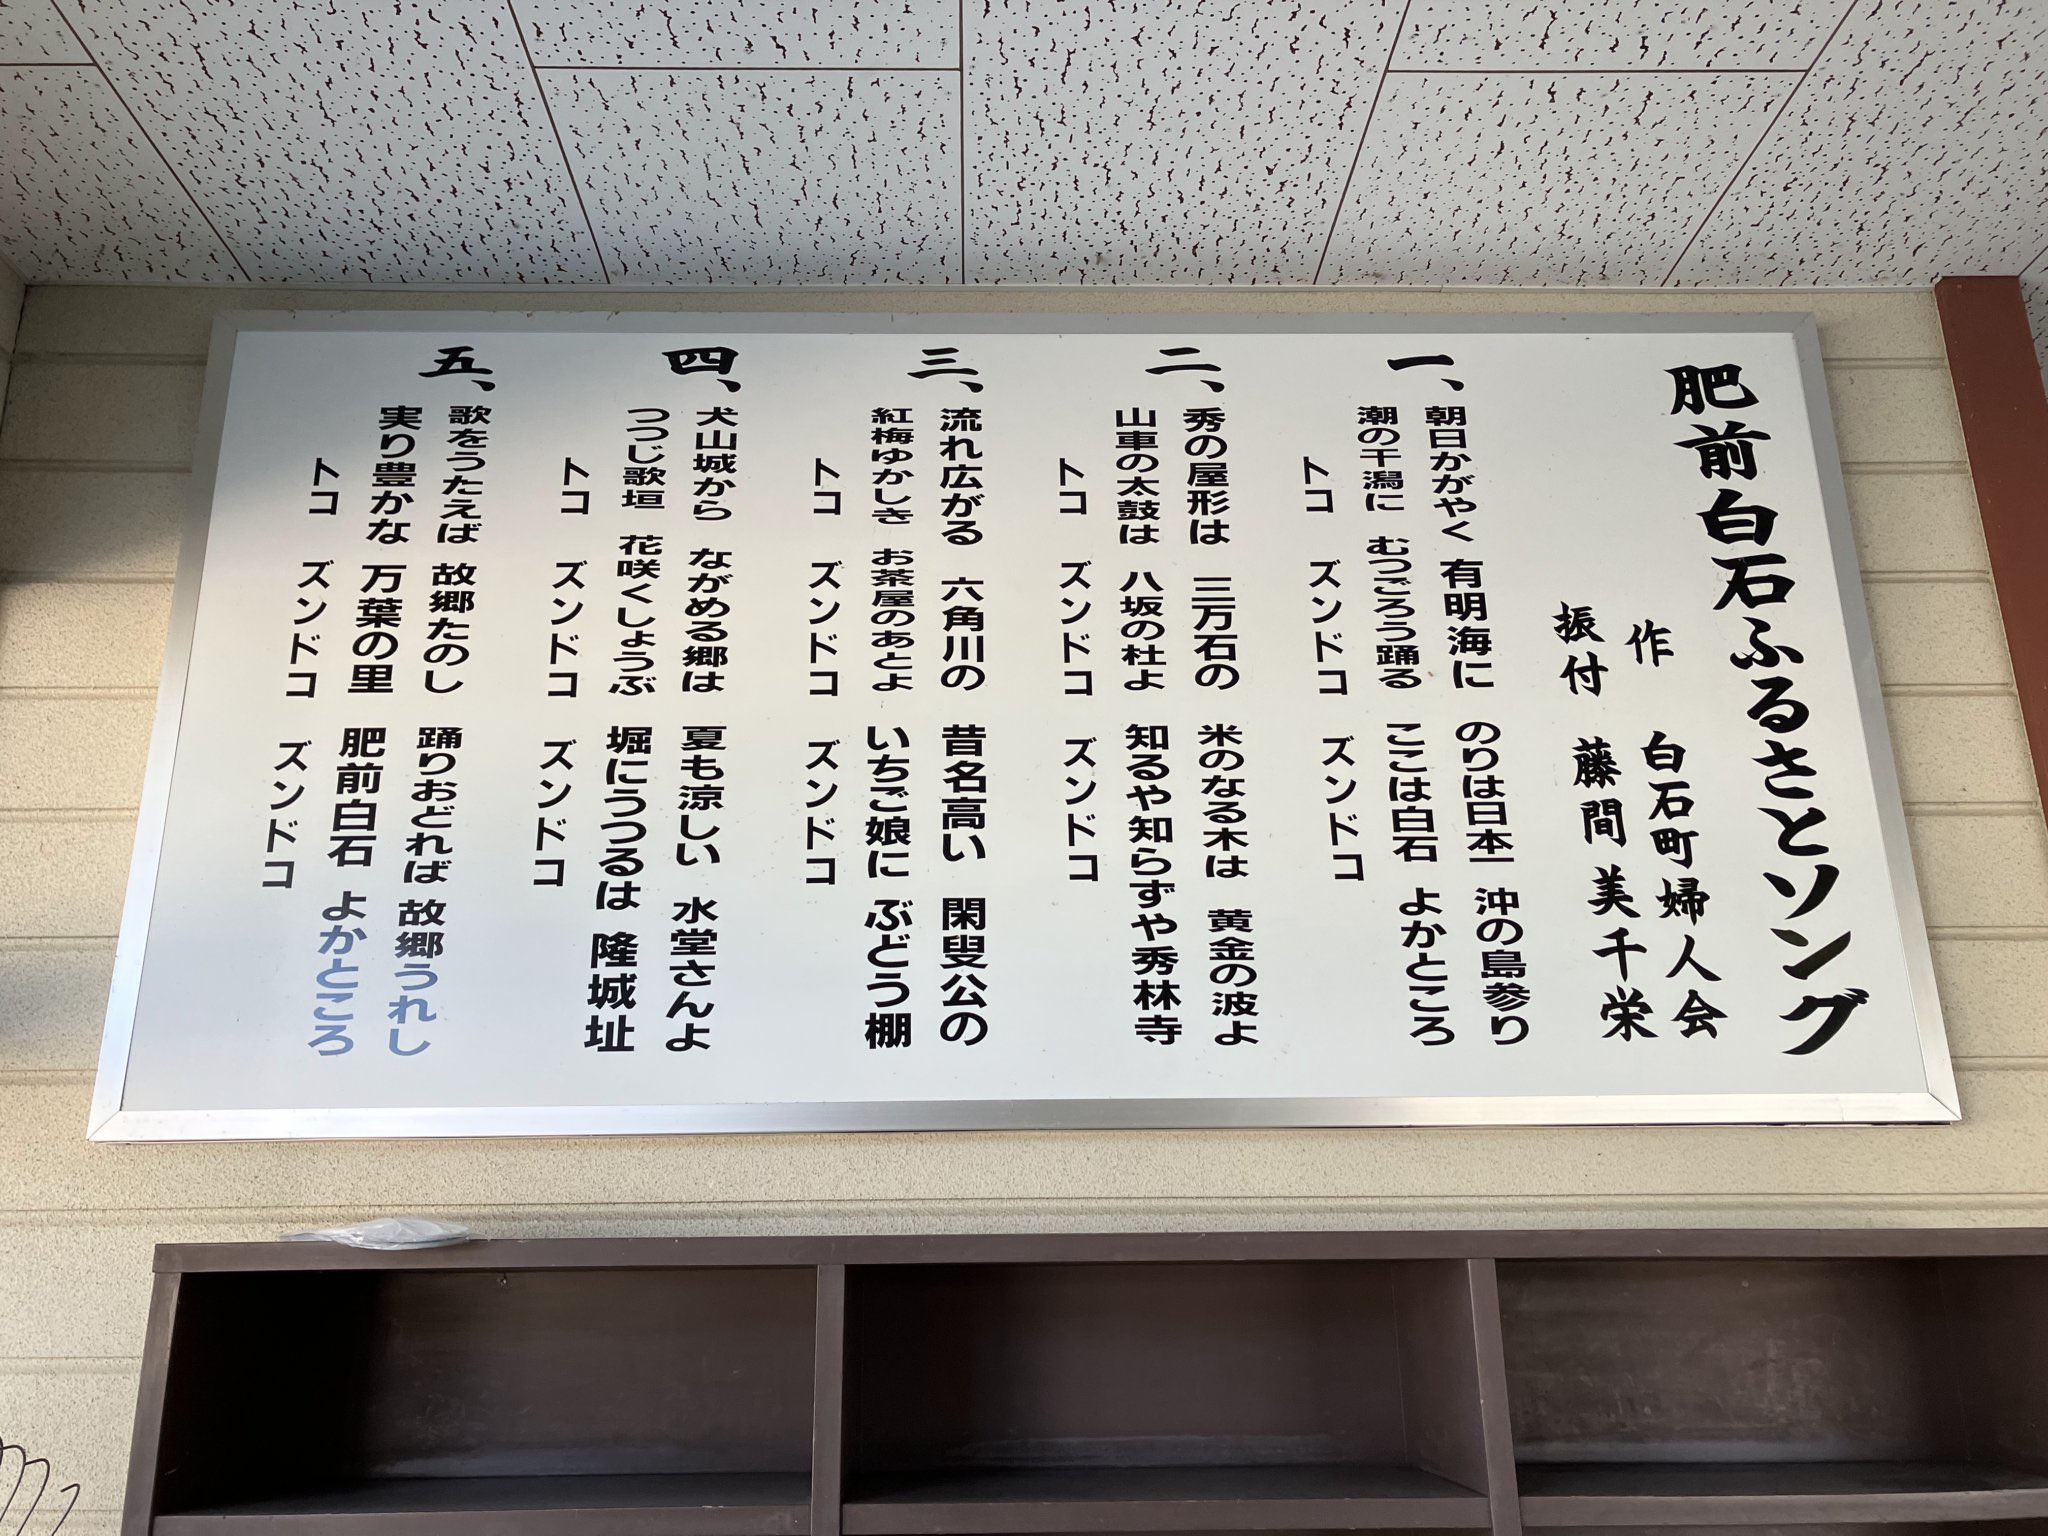 肥前白石ふるさとソング
作 白石町婦人会
振付 藤間美千栄
一、朝日かがやく 有明海に のりは日本一 沖の島参り
潮の干潟に むつごろう踊る ここは白石 よかところ
トコ ズンドコ ズンドコ
二、秀の屋形は 三万石の 米のなる木は 黄金の波よ
山車の太鼓は 八坂の杜よ 知るや知らずや秀林寺
トコ ズンドコ ズンドコ
三、流れ広がる 六角川の 昔名高い 閑叟公の
紅梅ゆかしき お茶屋のあとよ いちご娘に ぶどう棚
トコ ズンドコ ズンドコ
四、犬山城から ながめる郷は 夏も涼しい 水堂さんよ
つつじ歌垣 花咲くしょうぶ 堀にうつるは 隆城址
トコ ズンドコ ズンドコ
五、歌をうたえば 故郷たのし 踊りおどれば 故郷うれし
実り豊かな 万葉の里 肥前白石 よかところ
トコ ズンドコ ズンドコ